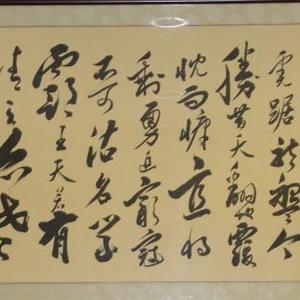 虎踞龙盘今
勝昔天翻地覆
慨而慷宜将
剩勇追窮寇
不可沽名学
霸王天若有
情天亦老